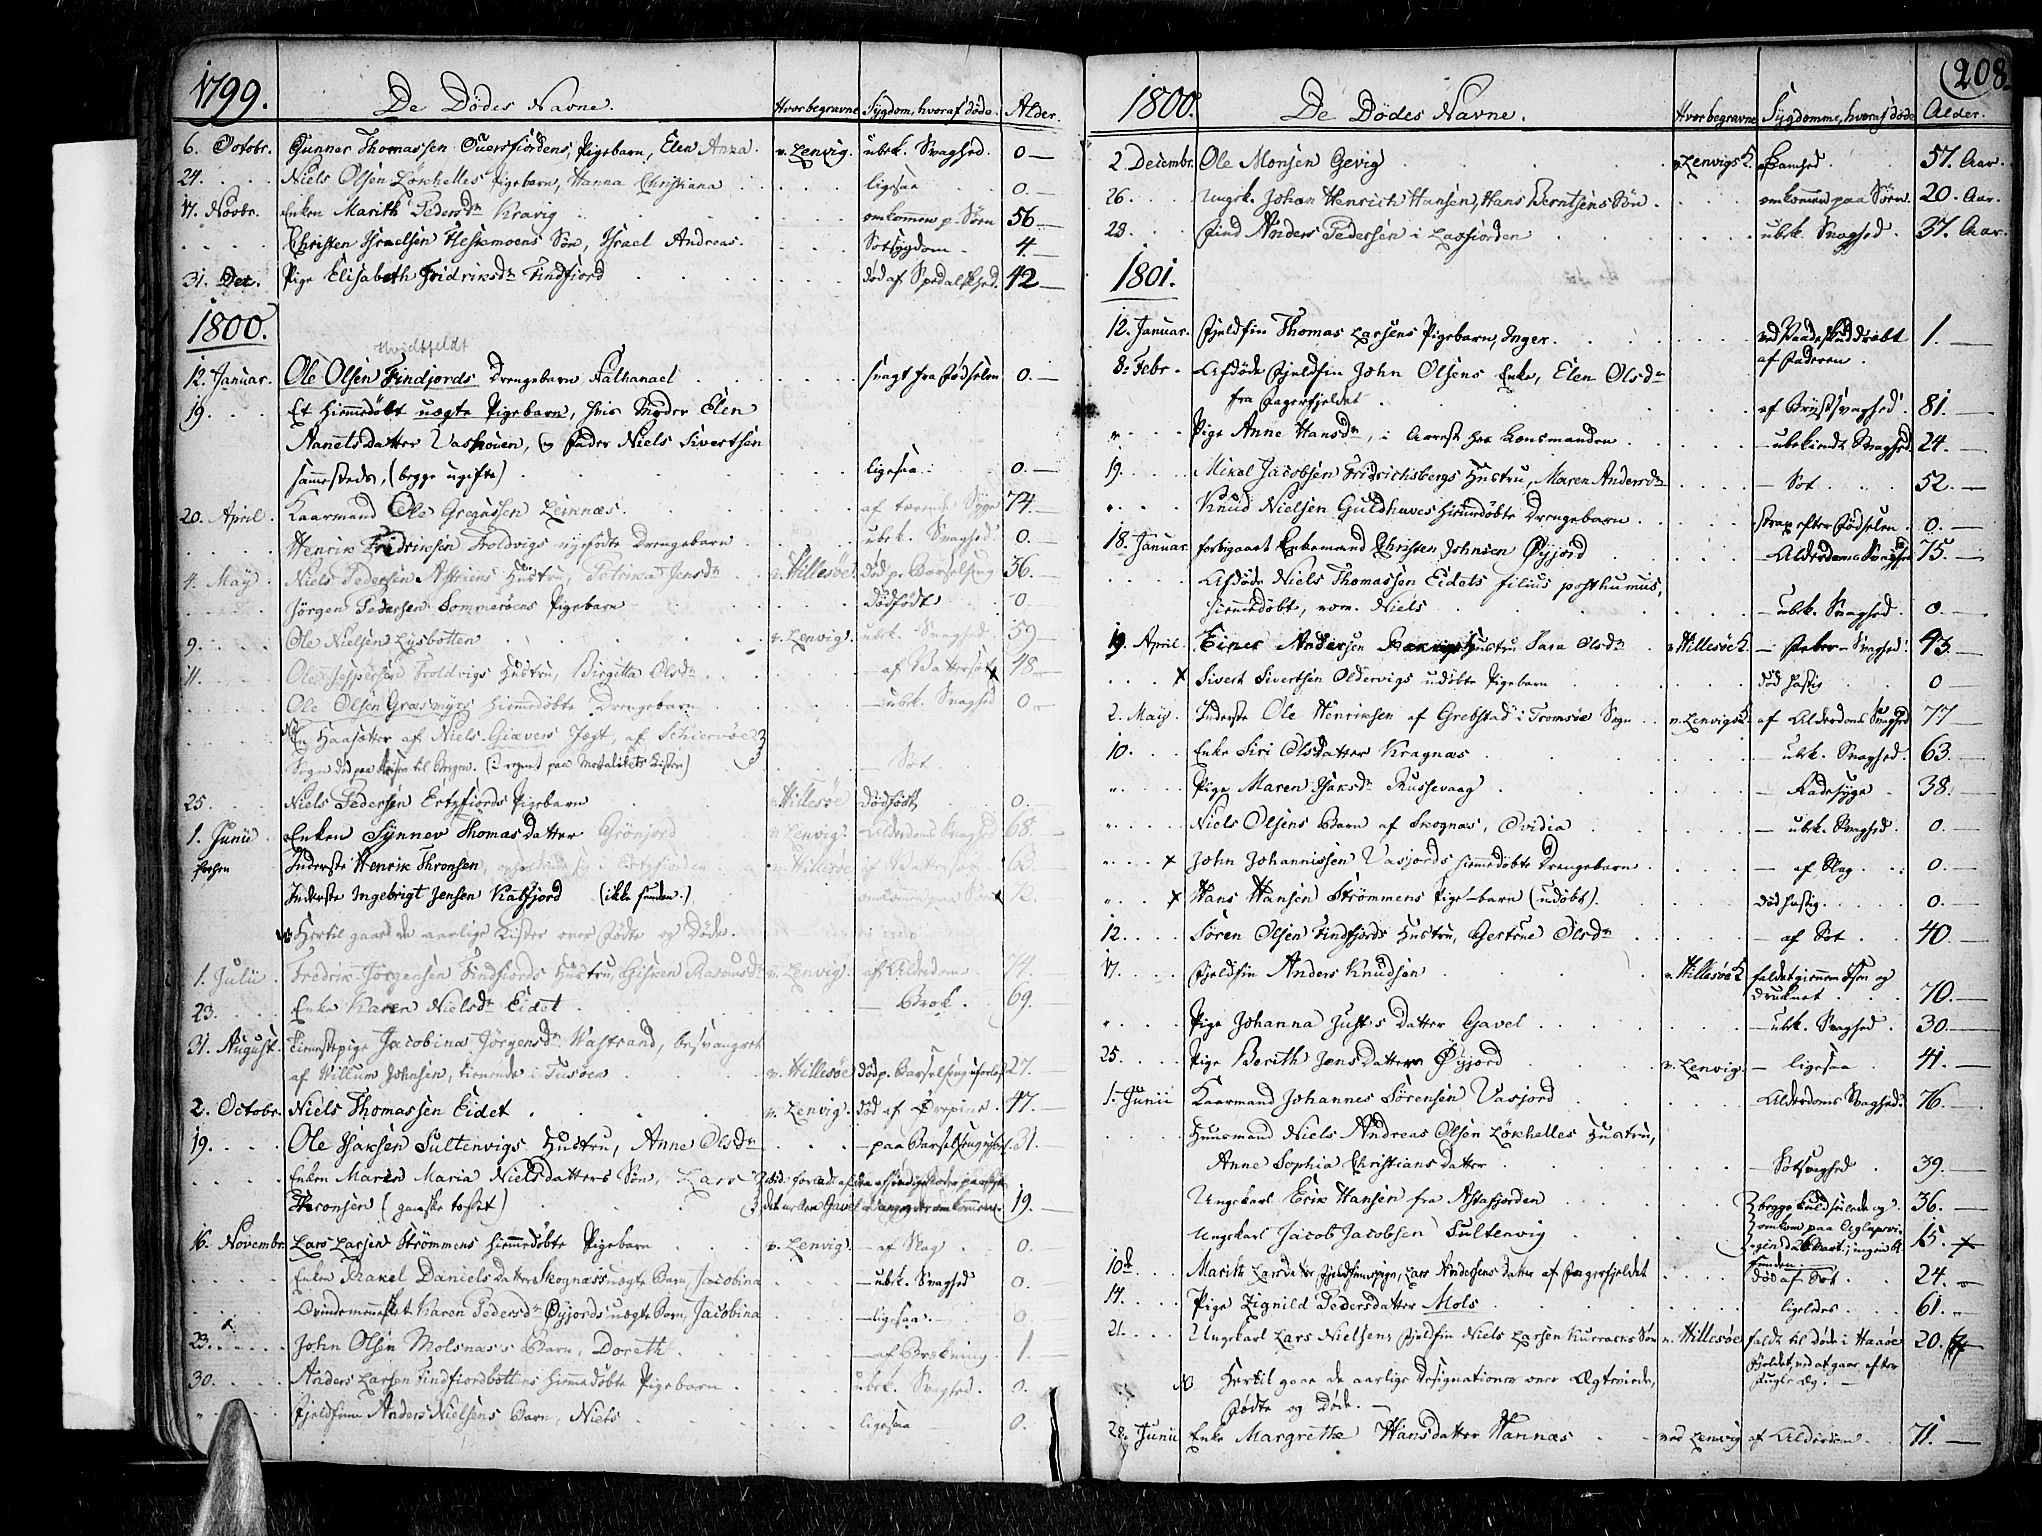 1799. De Dödes Navne. Hvor begravne Sygdom, hvoraf døde. Alder.
6. Octobr. Gunner Thomassen Ouersfiordens, Pigebarn, Elen Anna. v. Lenvig. ubek. Svaghed. 0 —
24. Niels Olsen Löchelles Pigebarn, Hanna Christiana ligesaa 0. —
17. Novbr. Enken Marith Peders dr Kravig omkomen p. Söen 56 —
Christen Israelsen Hestemoens Sön, Israel Andreas. Sotsygdom 4. —
31. Dec. Pige Elisabeth Fridriks dr Findfiord död af Spedalskhed. 42 —
1800.
Hvidtfeldt
12. Januar. Ole Olsen Findfjords Drengebarn Nathanael svagt fra Födselen 0. —
19. Et hiemmedöbt uægte Pigebarn, hvis Moder Elen
Nanets datter Vashouen, og Fader Niels Sivertsen
sammesteds, (begge ugifte) ligesaa 0. —
20. April. Kaarmand Ole Gregussen Leiknæs. af tærende Syge 74. —
Henrik Fridriksen Troldvigs nyefödte Drengebarn ubek. Svaghed. 0. —
4. May. Niels Pedersen Hustru, Petrika Jens dr v. Hillesöe. död p. Barselseng 36. —
Jörgen Pedersen Sommeröens Pigebarn dödfödt 0.
9. Ole Nielsen Lysbotten v. Lenvig. ubek. Svaghed. 59 —
11. Ole Jespersen Troldvigs Hustru, Birgitta Ols dr — af Vattersot x 48 —
Ole Olsen Græsmyrs hiemmedöbte Drengebarn — ubek. Svaghed 0. —
En Haasæter af Niels Giævers Jægt, af Schiervöe
Sogn död paa Reisen til Bergen. — Sot
25. Niels Pedersen Ertzfiords Pigebarn v. Hillesöe dödfödt 0.
1. Junii Enken Synnev Thomas datter Grönjord v. Lenvig. Alderdoms Svaghed 68. —
Inderste Henrik Thronsen, v. Hillesöe 63.
Inderste Ingebrigt Jensen Katfjord (ikke funden.) omkomen paa Söen x 12. —
Hertil gaaer de aarlige Lister over Födte og Döde.
1. Julii. Fredrik Jörgensen Findfiords Hustru, Rasmus dr v. Lenvig. af Alderdom 74. —
23. Enke Karen Niels dr Eidet — Brok. 69. —
31. August. Tienestepige Jacobina Jörgens dr Vastrand, besvangret
af Willum Johnsen, tienende i Tusöen v. Hillesöe död p. Barselseng uforløst 27. —
2. Octobr. Niels Thomassen Eidet v. Lenvig. död af 47. —
19. Ole Isaksen Sultenvigs Hustru, Anne Ols dr — paa Barselseng 31. —
Enken Maren Maria Niels datters Sön, Lars
Haronsen (ganske tosset) 19. —
16. Novembr. Lars Larsen Strömmens hiemmedöbte Pigebarn v. Lenvig. — af Slag 0.
Enken Rakel Daniels datter Skognæss uægte Barn, Jacobina — ubek. Svaghed 0.
Qvindemennesket Karen Peders dr Öyjords uægte Barn, Jacobina — ligesaa 0
23. John Olsen Molsnæss Barn, Doreth — af Brækning 1. —
30. Anders Larsen Findfiordbottens hiemmedöbte Pigebarn. ubek. Svaghed. 0.
Fjeldfinn Anders Nielsens Barn, Niels ligesaa 0.
1800. De Dödes Navne. Hvor begravne Sygdomme, hvoraf døde Alder. 208.
2. Decembr. Ole Monsen Gevig v. Lenvigs K. 57. Aar.
26. Ungk. Johan Henrich Hansen, Hans Berntsens Sön. omkommen paa Söen. 20. Aar.
28. Find Anders Pedersen i Laxfiorden ubek. Svaghed. 37. Aar.
1801.
12. Januar. Fjeldfin Thomas Larsens Pigebarn, Inger. ved Vaadeskud dræbt
af Faderen. 1. —
8. Febr. Afdöde Fjeldfin John Olsens Enke, Elen Ols dr
fra Fagerfjeldet af Brystsvaghed. 81. —
" Pige Anne Hans dr, i Arrest hos Lensmanden — ubekiendt Svaghed. 24. —
19. Mikal Jacobsen Fridrichsbergs Hustru, Maren Anders dr — Sot 52. —
" Knud Nielsen Guldhaves hiemmedöbte Drengebarn. strax efter Födselen. 0. —
18. Januar. forbigaaet Enkemand Christen Johnsen Öyjord — Alderdoms Svaghed 75. —
Afdöde Niels Thomassen Eidets filius posthumus,
hiemmedöbt, nom. Niels — ubek. Svaghed. 0. —
19. April. Einer Andersen Hustru Sara Ols dr v. Hillesöe K. — Feber-Svaghed. 43 —
x Sivert Sivertsen Oldervigs udöbte Pigebarn död hastig 0 —
2. May. Inderste Ole Henriksen af Grebstad i Tromsöe Sogn v. Lenvigs K. af Alderdoms Svaghed 77 —
10. Enke Siri Olsdatter Kragnæs — ubek. Svaghed. 63. —
" Pige Maren Isaks dr Russevaag — Radesyge 38. —
" Niels Olsens Barn af Skognæs, Ovidia — ubek. Svaghed. 0. —
" x John Johannissen Vasjords hiemmedöbte Drengebarn — af Slag 0. —
" x Hans Hansen Strömmens Pige-barn (udöbt). död hastig. 0. —
12. Sören Olsen Findfjords Hustru, Gertrue Ols dr — af Sot 40. —
17. Fjeldfin Anders Knudsen v. Hillesöe K. faldet giennem Isen og
druknet 70. —
" Pige Johanna Just's datter Gavel — ubek. Svaghed. 30. —
25. Pige Berith Jens datter Öyjord v. Lenvig. — ligesaa 41. —
1. Junii Kaarmand Johannes Sörensen Vasjord Alderdoms Svaghed. 76. —
Huusmand Niels Andreas Olsen Löchelles Hustru,
Anne Sophia Christians datter — Sotsvaghed 39. —
Ungekarl Erik Hansen fra Astafjorden begge kuldseilede og 36. —
Ungekarl Jacob Jacobsen Sultenvig omkom paa 15. x
funden.
10de Marith Larsdatter Fjeldfinnepige, Lars Andersens datter af Fagerfjeldet död af Sot 24. —
14. Pige Zignild Pedersdatter Mols ligeledes 61. —
21. Ungekarl Lars Nielsen, Fjeldfin Niels Larsen Sön v. Hillesöe faldt til döde i Haaöe 20.
Fjeldet, ved at gaae efter
Fugle Æg. —
NB Hertil gaae de aarlige Designationer over Ægteviede,
Födte og Döde. —
28. Junii Enke Margrethe Hansdatter Hannæs ved Lenvig af Alderdom. 71. —